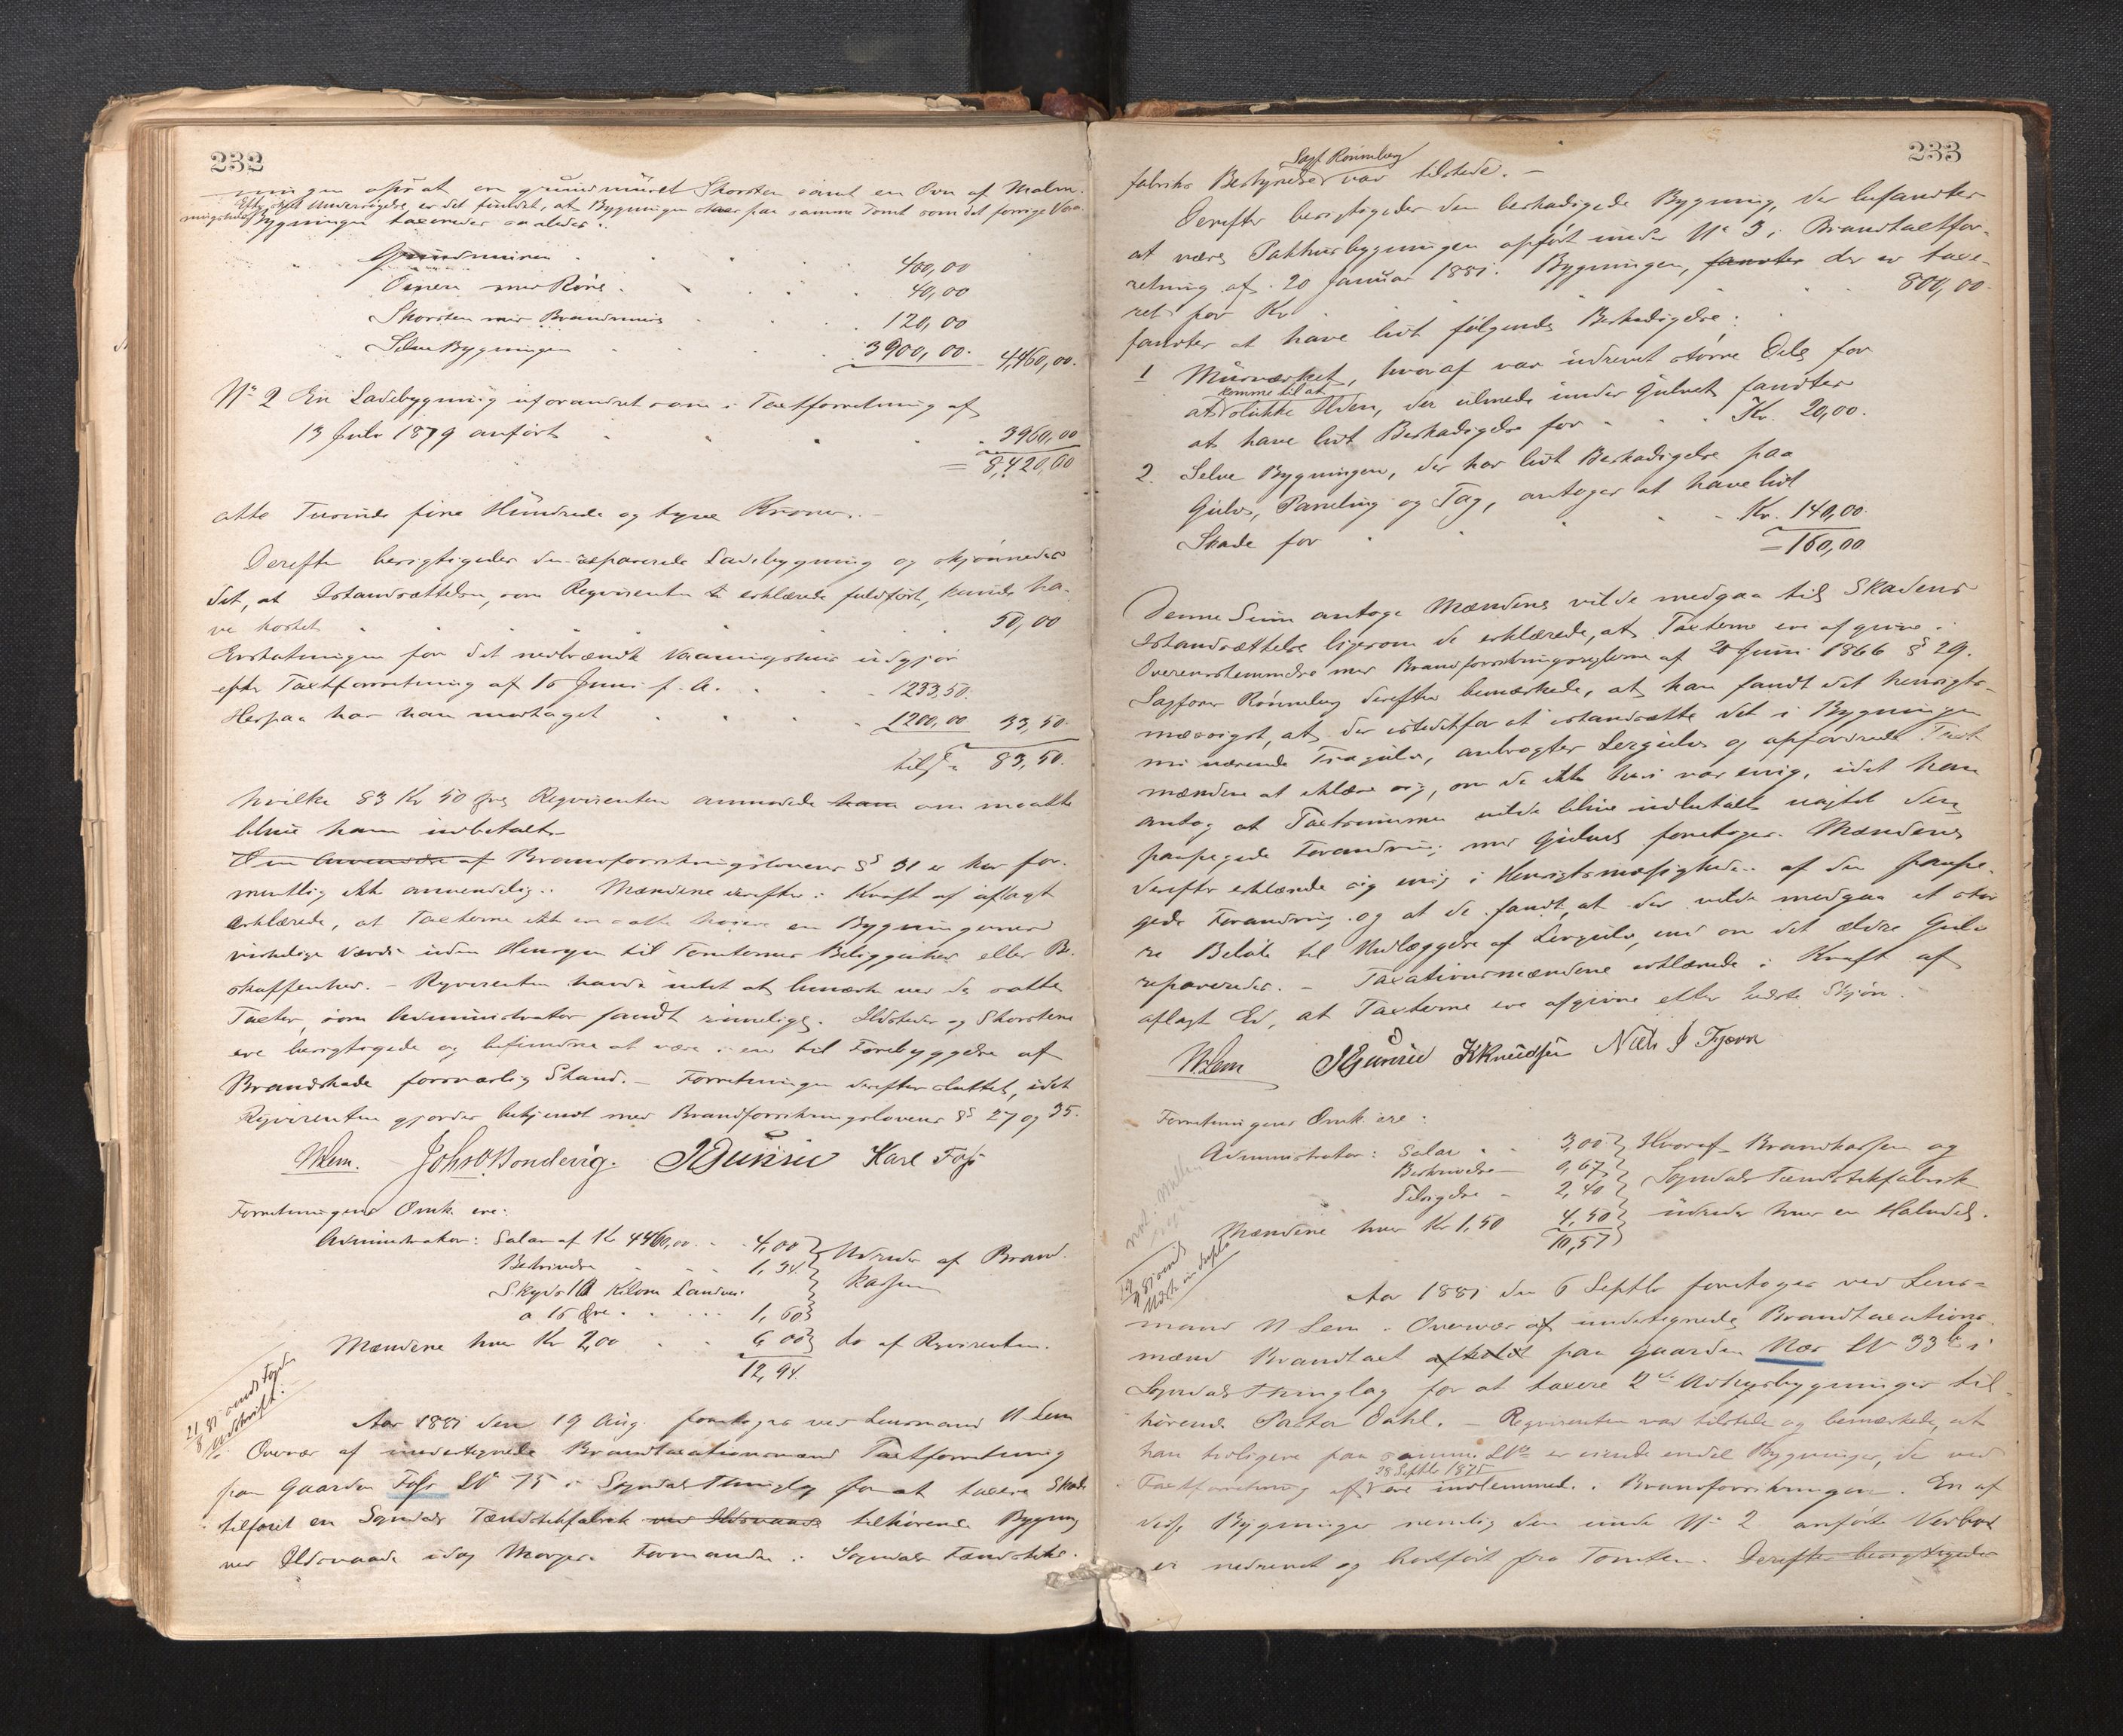 232
opsat en grundmuret Skorsten samt en Ovn af Malm.
Efter Undersøgelse er det fundet, at Bygningen staar paa samme Tomt som det forrige Vaa-
ningshus Bygningen taxeredes saaledes:
Grundmuren 400,00
Ovnen med Rør 40,00
Skorsten med Brandmur 120,00
Selve Bygningen 3900,00 4,460,00.
No 2 En Ladebygning uforandret som i Taxtforretning af
13 Juli 1879 anført 3960,00
= 8,420,00
otte Tusinde fire Hundrede og tyve Kroner. -
Derefter besigtigedes den reparerede Ladebygning og skjønnedes
det, at Istandsættelsen, som Reqvirenten erklærede fuldført, kunde ha-
ve kostet 50,00
Erstatningen for det nedbrændte Vaaningshus udgjør
efter Taxtforretning af 15 Juni f. A. 1233,50.
Herpaa har han modtaget 1200,00 33,50.
tils. 83,50.
hvilke 83 Kr 50 Øre Reqvirenten anmodede ham om maatte
blive ham indbetalt.
Om Anvendelse af Brandforsikringslovens § 31 er her for-
mentlig ikke anvendelig. Mændene derefter i Kraft af aflagt
erklærede, at Taxterne ikke ere satte høiere en Bygningernes
virkelige Værdi uden Hensyn til Tomternes Beliggenhed eller Be-
skaffenhed. - Reqvirenten havde intet at bemærke ved de satte
Taxter, som Administrator fandt rimelige. Ildsteder og Skorstene
ere besigtigede og befundne at være i en til Forebyggelse af
Brandskade forsvarlig Stand. - Forretningen derefter sluttet, idet
Reqvirenten gjordes bekjendt med Brandforsikringslovens §§ 27 og 35.
NLem. Johs O. Bondevig. Karl Foss
Forretningens Omk. ere:
Administrator: Salær af Kr 4460,00 4,00 Udredes af Brand-
Beskrivelse 1,34 kassen
Skyds 10 Kilom Landvei
a 16 Øre 1,60
Mændene hver Kr 2,00 6,00 do af Reqvirenten.
12,94
21/8 81 Udskrift.
Aar 1881 den 19 Aug. foretoges ved Lensmand N Lem
i Overvær af undertegnede Brandtaxationsmænd Taxtforretning
paa Gaarden Foss LN 75 i Sogndals Thinglag for at taxere Skade
tilføiet en Sogndals Tændstikfabrik ved Ildsvaade tilhørende Bygning
ved Ildsvaade idag Morges. Formanden i Sogndals Tændstik-
233
Sagf Rønneberg
fabriks Bestyrelse var tilstede. -
Derefter besigtigedes den beskadigede Bygning, der befandtes
at være Pakhusbygningen opført under No 3 i Brandtaxtfor-
retning af 20 Januar 1881. Bygningen, fandtes der er taxe-
ret for Kr 800,00.
fandtes at have lidt følgende Beskadigelse:
1 Murværket, hvoraf var udrevet større Dele for
komme til at
at slukke Ilden, der ulmede under Gulvet fandtes
at have lidt Beskadigelse for Kr. 20,00.
2. Selve Bygningen, der har lidt Beskadigelse paa
Gulv, Paneling og Tag, antages at have lidt
Skade for Kr. 140,00.
= 160,00
Denne Sum antoge Mændene vilde medgaa til Skadens
Istandsættelse ligesom de erklærede, at Taxterne ere afgivne i
Overensstemmelse med Brandforsikringsreglerne af 20 Juni 1866 § 29.
Sagfører Rønneberg derefter bemærkede, at han fandt det hensigts-
mæssigst, at der istedetfor at istandsætte det i Bygningen
nu værende Trægulv, anbragtes Lergulv og opfordrede Taxt-
mændene at erklære sig, om de ikke heri var enig, idet han
antog at Taxtsummen vilde blive indbetalt uagtet den
paapegede Forandring med Gulvet foretoges. Mændene
derefter erklærede sig enig i Hensigtsmæsigheden af den paape-
gede Forandring og at de fandt, at der vilde medgaa et stør-
re Beløb til Nedlæggelse af Lergulv, end om det ældre Gulv
reparerede. - Taxationsmændene erklærede i Kraft af
aflagt Ed, at Taxterne ere afgivne efter bedste Skjøn.
NLem KKnudsen Niels J Fjærn
Forretningens Omk. ere:
Administrator: Salær 3,00 Hvoraf Brandkassen og
Beskrivelse 0,67 Sogndals Tændstikfabrik
Tilsigelse 2,40 udreder hver en Halvdel.
Mændene hver Kr 1,50 4,50
10,57
Aar 1881 den 6 Septbr foretoges ved Lens-
mand N Lem i Overvær af undertegnede Brandtaxations-
mænd Brandtaxt afholdt paa Gaarden Næs LN 33b i
Sogndals Thinglag for at taxere 2de Udhusbygninger til-
hørende Pastor Dahl. - Reqvirenten var tilstede og bemærkede, at
han tidligere paa samme LNo er eiende endel Bygninger, der ved
28 Septbr 1875
Taxtforretning af ere indlemmede i Brandforsikringen. En af
disse Bygninger nemlig den under No 2 anførte Vedbod
er nedrevet og bortført fra Tomten. Derefter besigtigedes